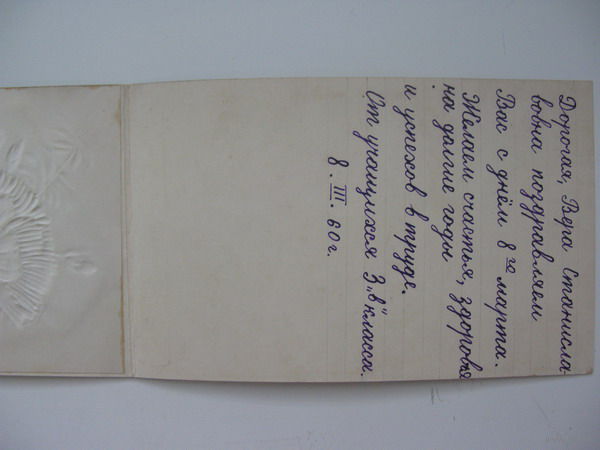 Дорогая, Вера Станисла-
вовна поздравляем
Вас с днём 8го марта.
Желаем счастья, здоровья
на долгие годы
и успехов в труде.
От учащихся 3 „в" класса.
8. III. 60 г.